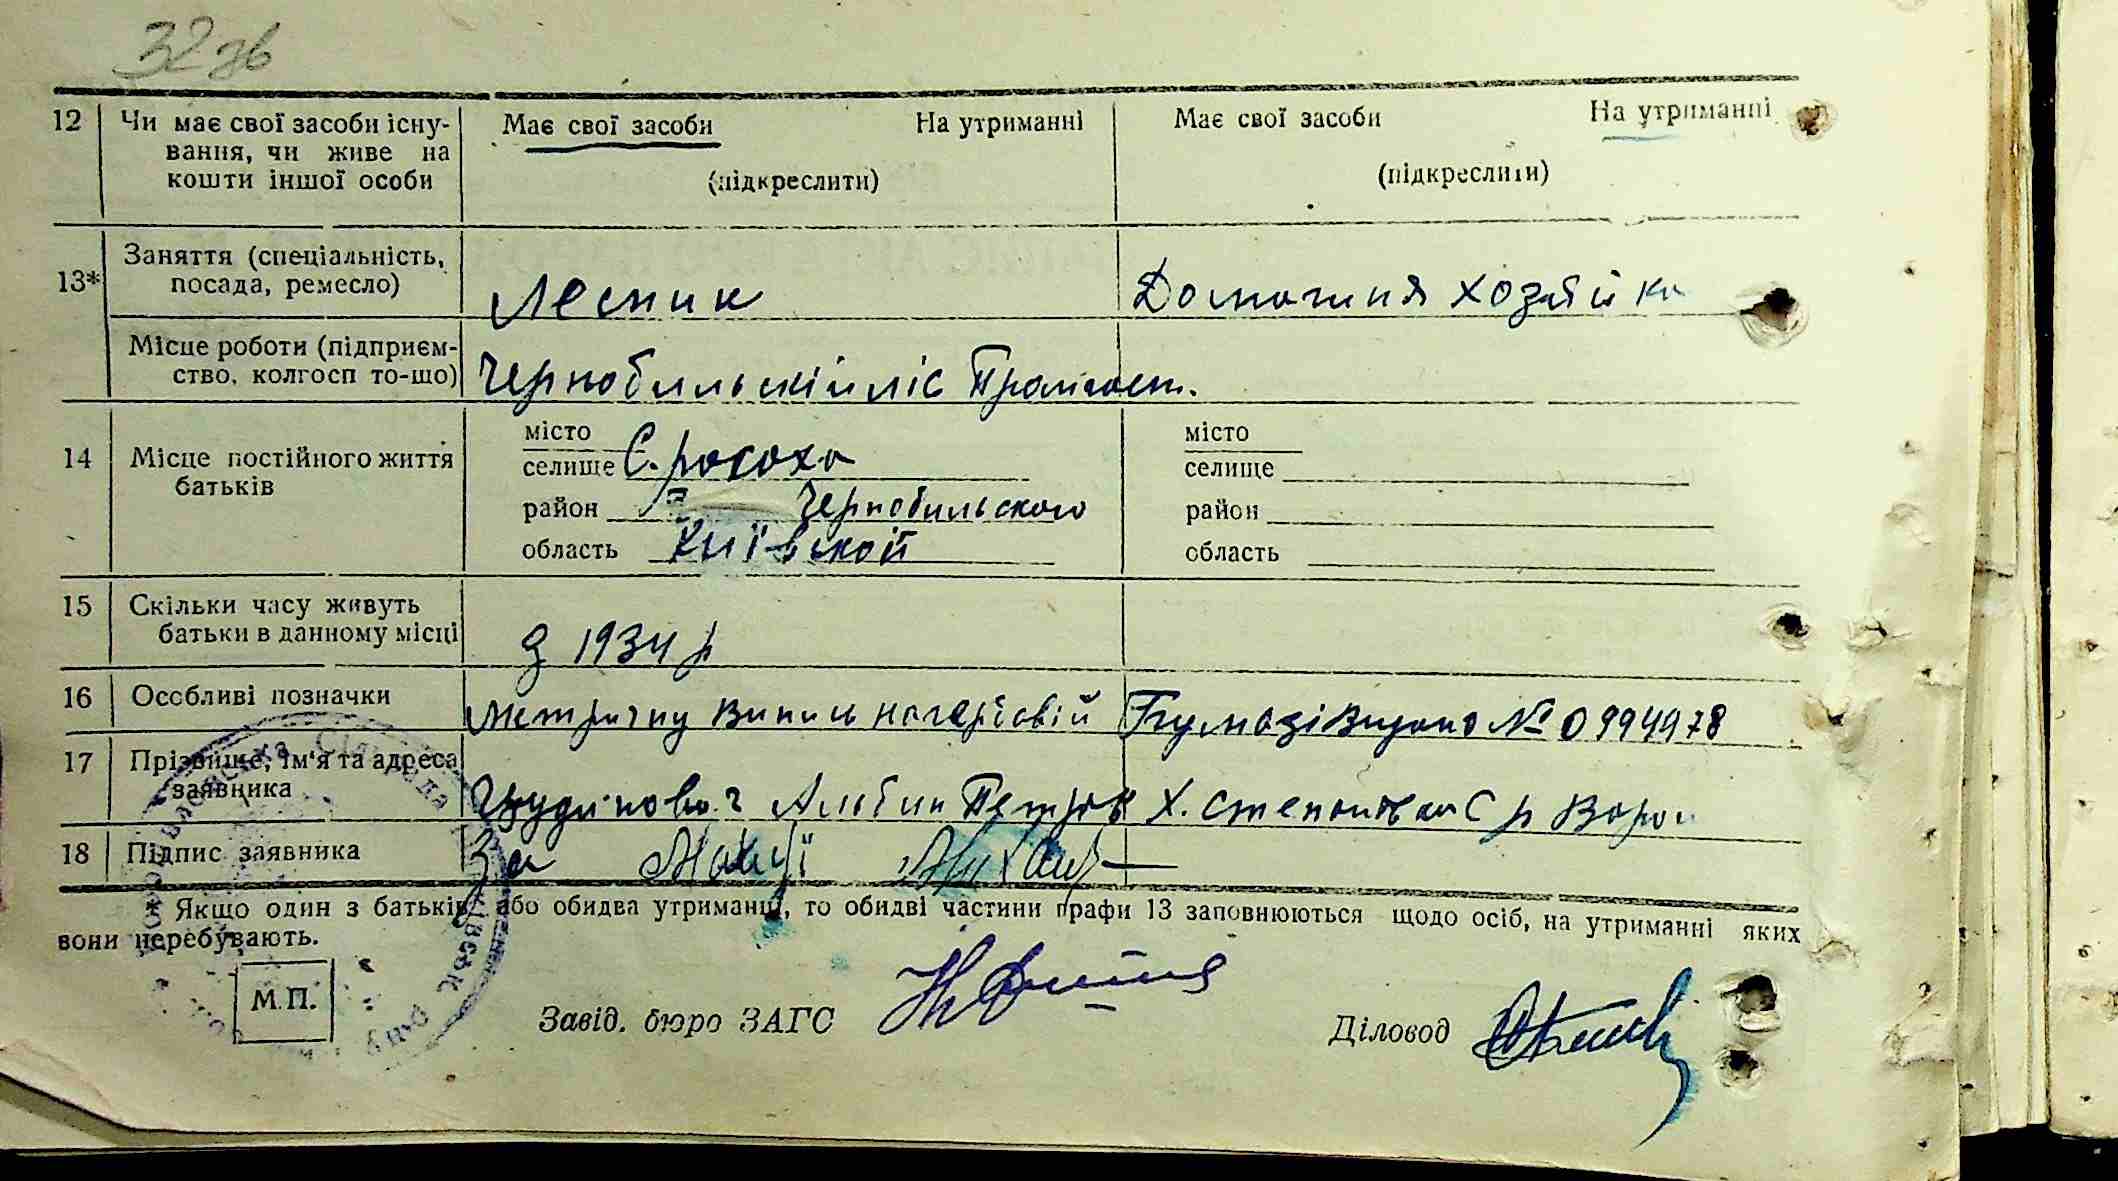 32 зв
12 Чи має свої засоби існу- Має свої засоби На утриманні Має свої засоби На утриманні
вання, чи живе на
кошти іншої особи (підкреслити) (підкреслити)
13* Заняття (спеціальність,
посада, ремесло) Лесник Домашня хозяйка
Місце роботи (підприєм-
ство, колгосп то-що) Чернобильскій ліс
14 Місце постійного життя
батьків
місто місто
селище С. росоха селище
район Чернобильского район
область Київской область
15 Скільки часу живуть
батьки в данному місці з 1934 р
16 Особливі позначки Метричну Випись на гербовій Бумазі Видано № 0994978
17 Прізвище, ім'я та адреса
заявника Альбин Петров Х.
18 Підпис заявника За
* Якщо один з батьків або обидва утриманці, то обидві частини графи 13 заповнюються щодо осіб, на утриманні яких
вони перебувають.
М.П.
Завід. бюро ЗАГС Діловод